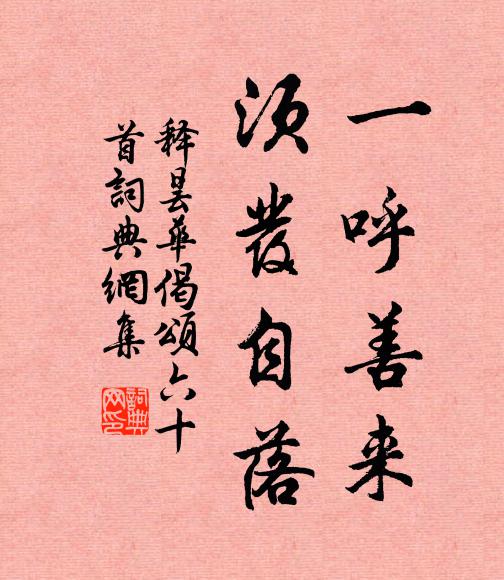 一呼善来
须发自落
释昙华偈颂六十
首詞典網集
詞典
网印